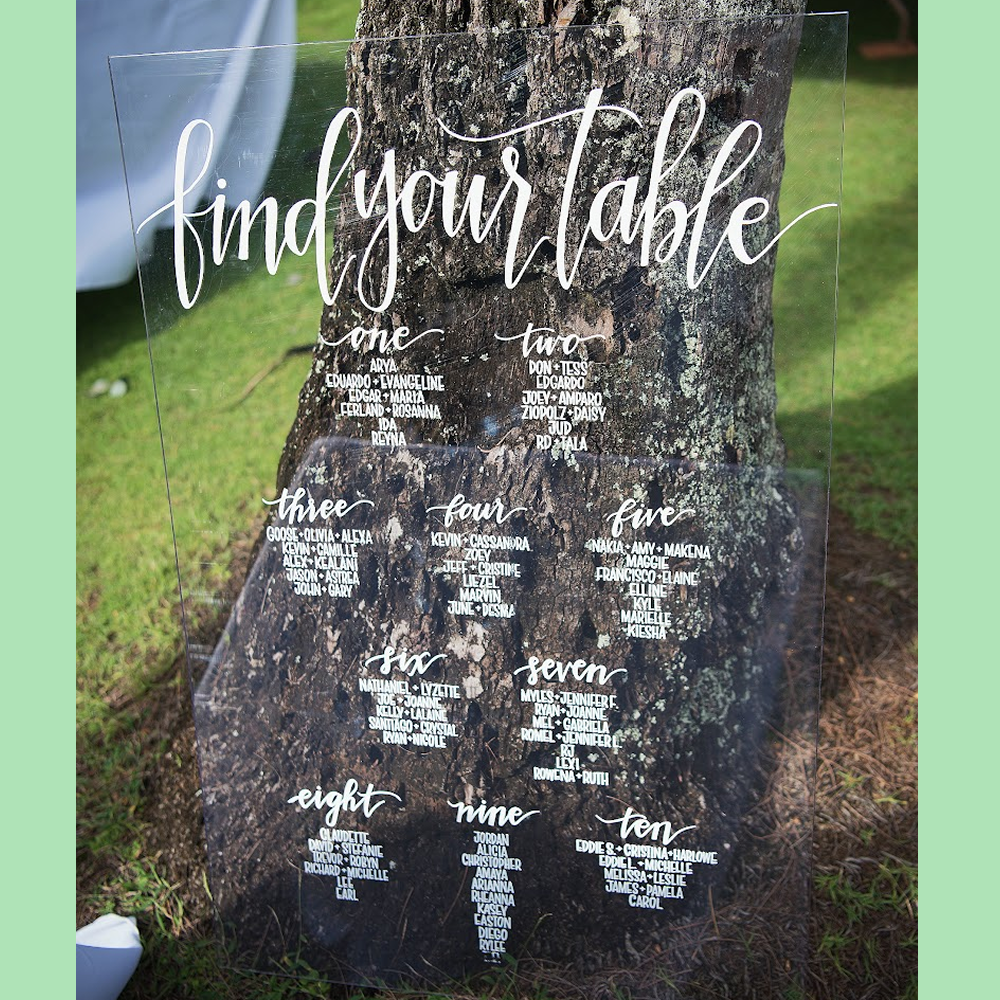 find your table
one
ARYA
EDUARDO + EVANGELINE
EDGAR + MARIA
FERLAND + ROSANNA
IDA
REYNA
two
DON + TESS
EDGARDO
JOEY + AMPARO
ZIOPOLZ + DAISY
JUD
RD + TALA
three
GOOSE + OLIVIA + ALEXA
KEVIN + CAMILLE
ALEX + KEALANI
JASON + ASTREA
JOHN + GARY
four
KEVIN + CASSANDRA
ZOEY
JEFF + CRISTINE
LIEZEL
MARVIN
JUNE + DESMA
five
NAKIA + AMY + MAKENA
MAGGIE
FRANCISCO + ELAINE
ELLINE
KYLE
MARIELLE
KIESHA
six
NATHANIEL + LYZETTE
JOE + JOANNE
KELLY + LALAINE
SANTIAGO + CRYSTAL
RYAN + NICOLE
seven
MYLES + JENNIFER F.
RYAN + JOANNE
MEL + GABRIELA
ROMEL + JENNIFER L.
RJ
LEXI
ROWENA + RUTH
eight
CLAUDETTE
DAVID + STEFANIE
TREVOR + ROBYN
RICHARD + MICHELLE
LEE
EARL
nine
JORDAN
ALICIA
CHRISTOPHER
AMAYA
ARIANNA
RHEANNA
KASEY
EASTON
DIEGO
RYLEE
ten
EDDIE S. + CRISTINA + HARLOWE
EDDIE L. + MICHELLE
MELISSA + LESLIE
JAMES + PAMELA
CAROL